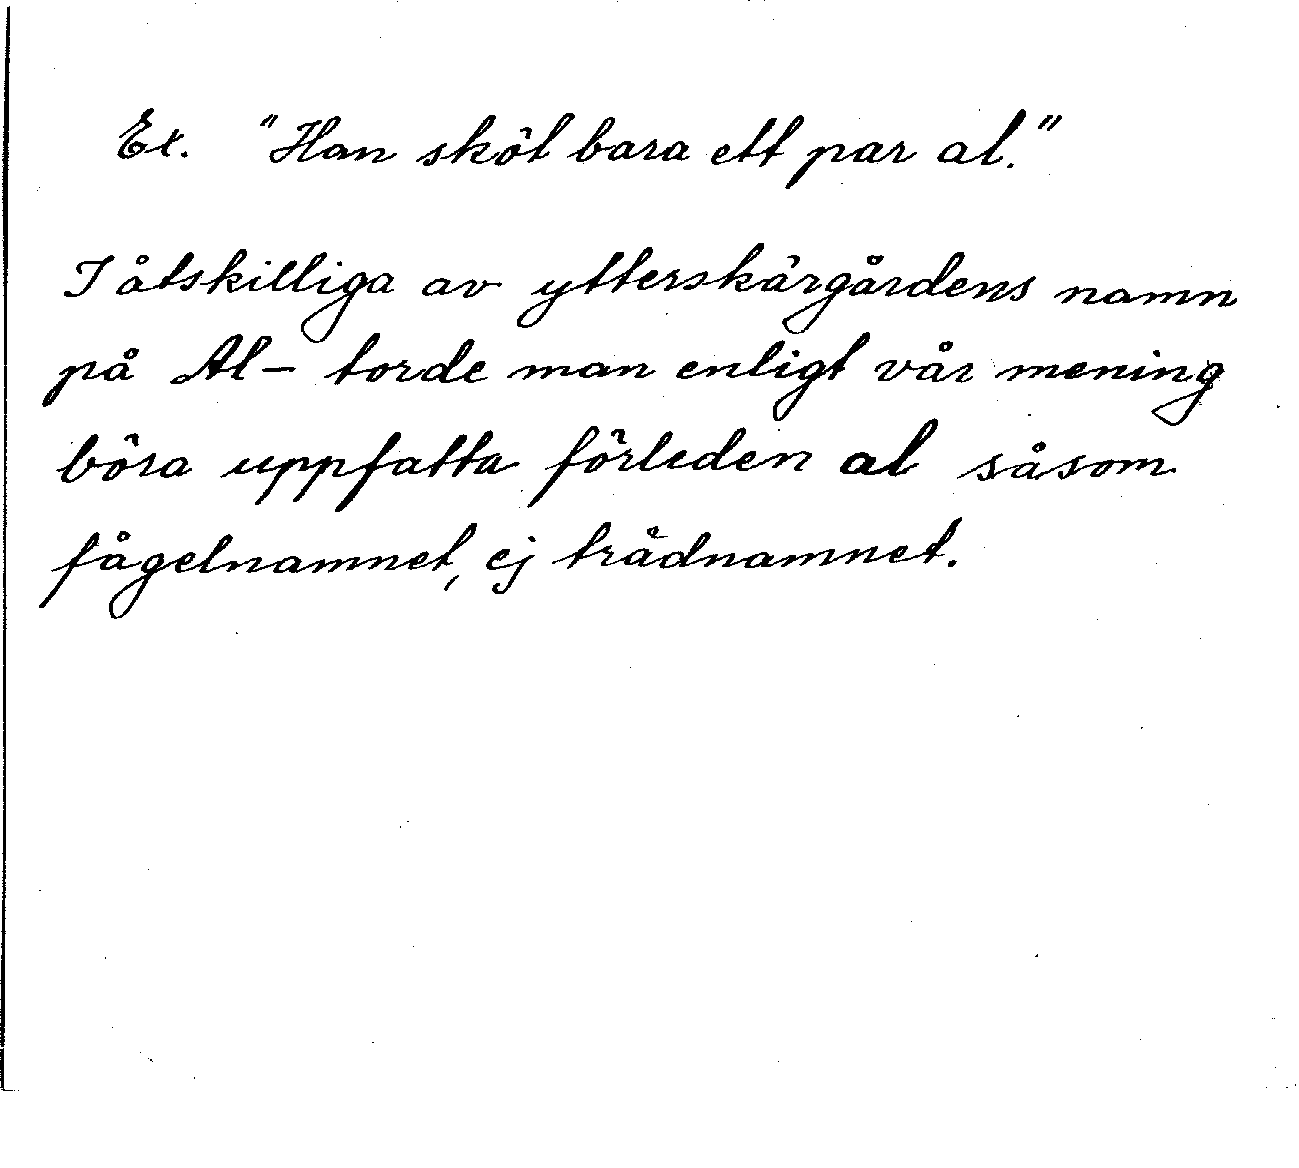 Ex. "Han sköt bara ett par al."
I åtskilliga av ytterskärgårdens namn
på Al- torde man enligt vår mening
böra uppfatta förleden al såsom
fågelnamnet, ej trädnamnet.